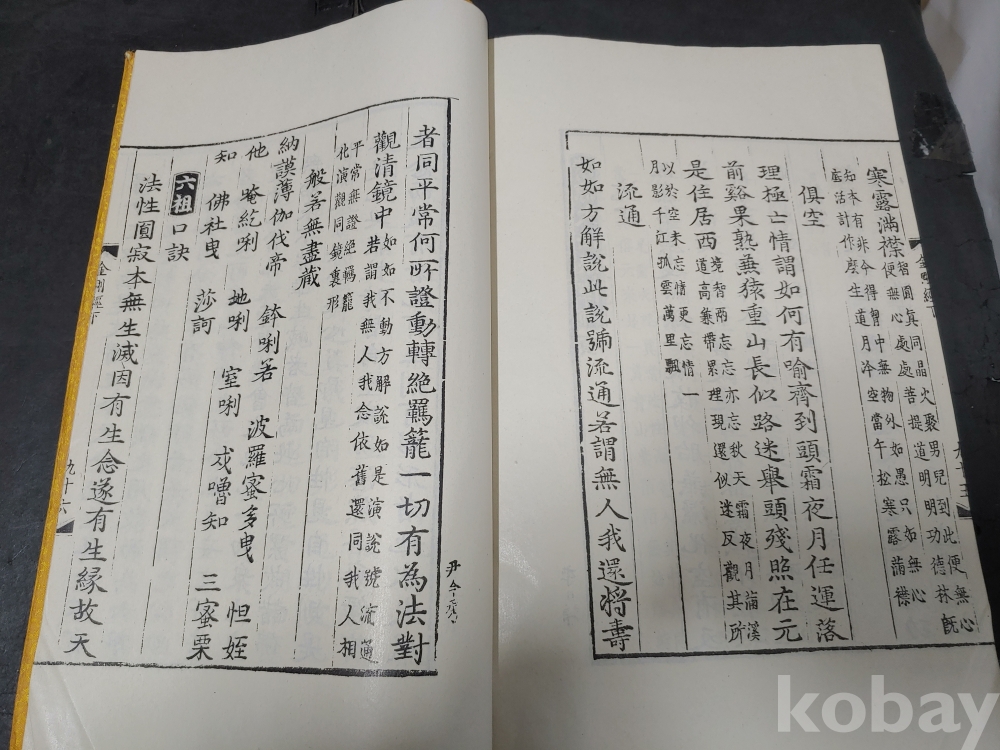 寒露滿襟智圓真同晶火聚男兒到此便無心
便無心處處菩提道明明功德林旣
知本有非今得胷中無物外如愚只如無心
底活計作麽生道月冷空當午松寒露滿襟
俱空
理極亡情謂如何有喻齊到頭霜夜月任運落
前谿果熟蒹猿重山長似路迷舉頭殘照在元
是住居西境智兩忘忘亦忘秋天霜夜月滿溪
道高兼帶累理現還似迷反觀其所
以於空未忘情更忘情一
月影千江孤雲萬里飄
流通
如如方解說此說號流通若謂無人我還將壽
者同平常何所證動轉絕羈籠一切有為法對
觀清鏡中如如不動方解說如是演說號流通
若謂我無人我念依舊還同我人相
平常無證絕羈籠
化演觀同鏡裏形
般若無盡藏
納謨薄伽伐帝 鉢唎若 波羅蜜多曳 怛姪
他 唵紇唎 地唎 室唎 戍嚕知 三蜜栗
知 佛社曳 莎訶
六祖口訣
法性圓寂本無生滅因有生念遂有生緣故天
金剛經下
九十六
kobay